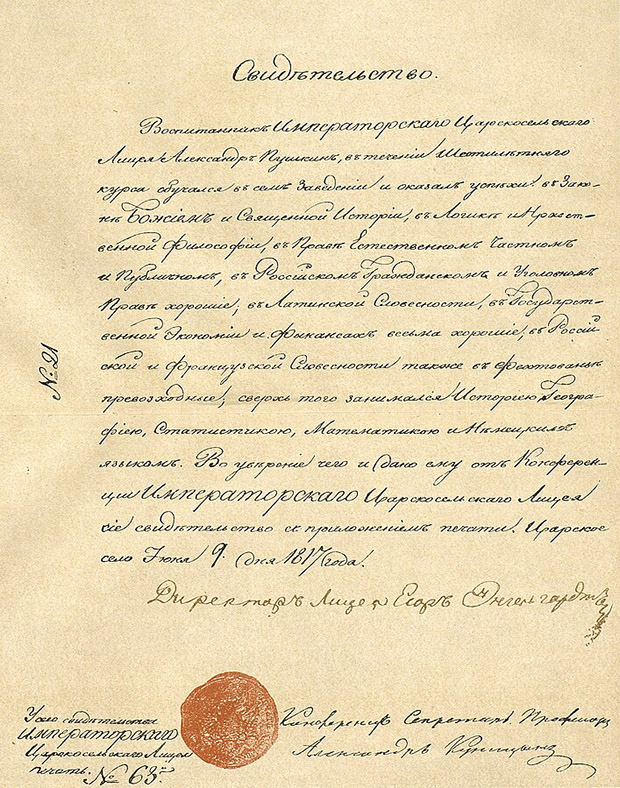 Свидѣтельство.
Воспитанникъ Императорскаго Царскосельскаго
Лицея Александръ Пушкинъ, въ теченіи Шестилѣтняго
курса обучался въ семъ Заведеніи и оказалъ успѣхи: въ Зако-
нѣ Божіемъ и Священной Исторіи, въ Логикѣ и Нравст-
венной Философіи, въ Правѣ Естественномъ Частномъ
и Публичномъ, въ Россійскомъ Гражданскомъ и Уголовномъ
Правѣ хорошіе; въ Латинской Словесности, въ Государст-
венной Экономіи и Финансахъ весьма хорошіе, въ Россій-
ской и Французской Словесности также въ Фехтованьи
превозходные; сверхъ того занимался Исторіею, Геогра-
фіею, Статистикою, Математикою и Нѣмецкимъ
языкомъ. Во увѣреніе чего и дано ему отъ Конферен-
ціи Императорскаго Царскосельскаго Лицея
сіе свидѣтельство съ приложеніемъ печати. Царское
село Іюня 9. дня 1817 года.
№. 21
Директоръ Лицея Егоръ Энгельгардтъ
У сего свидѣтельства
Императорскаго
Царскосельскаго Лицея
печать.
№ 63й
Конференцъ Секретарь Профессоръ
Александръ Куницынъ